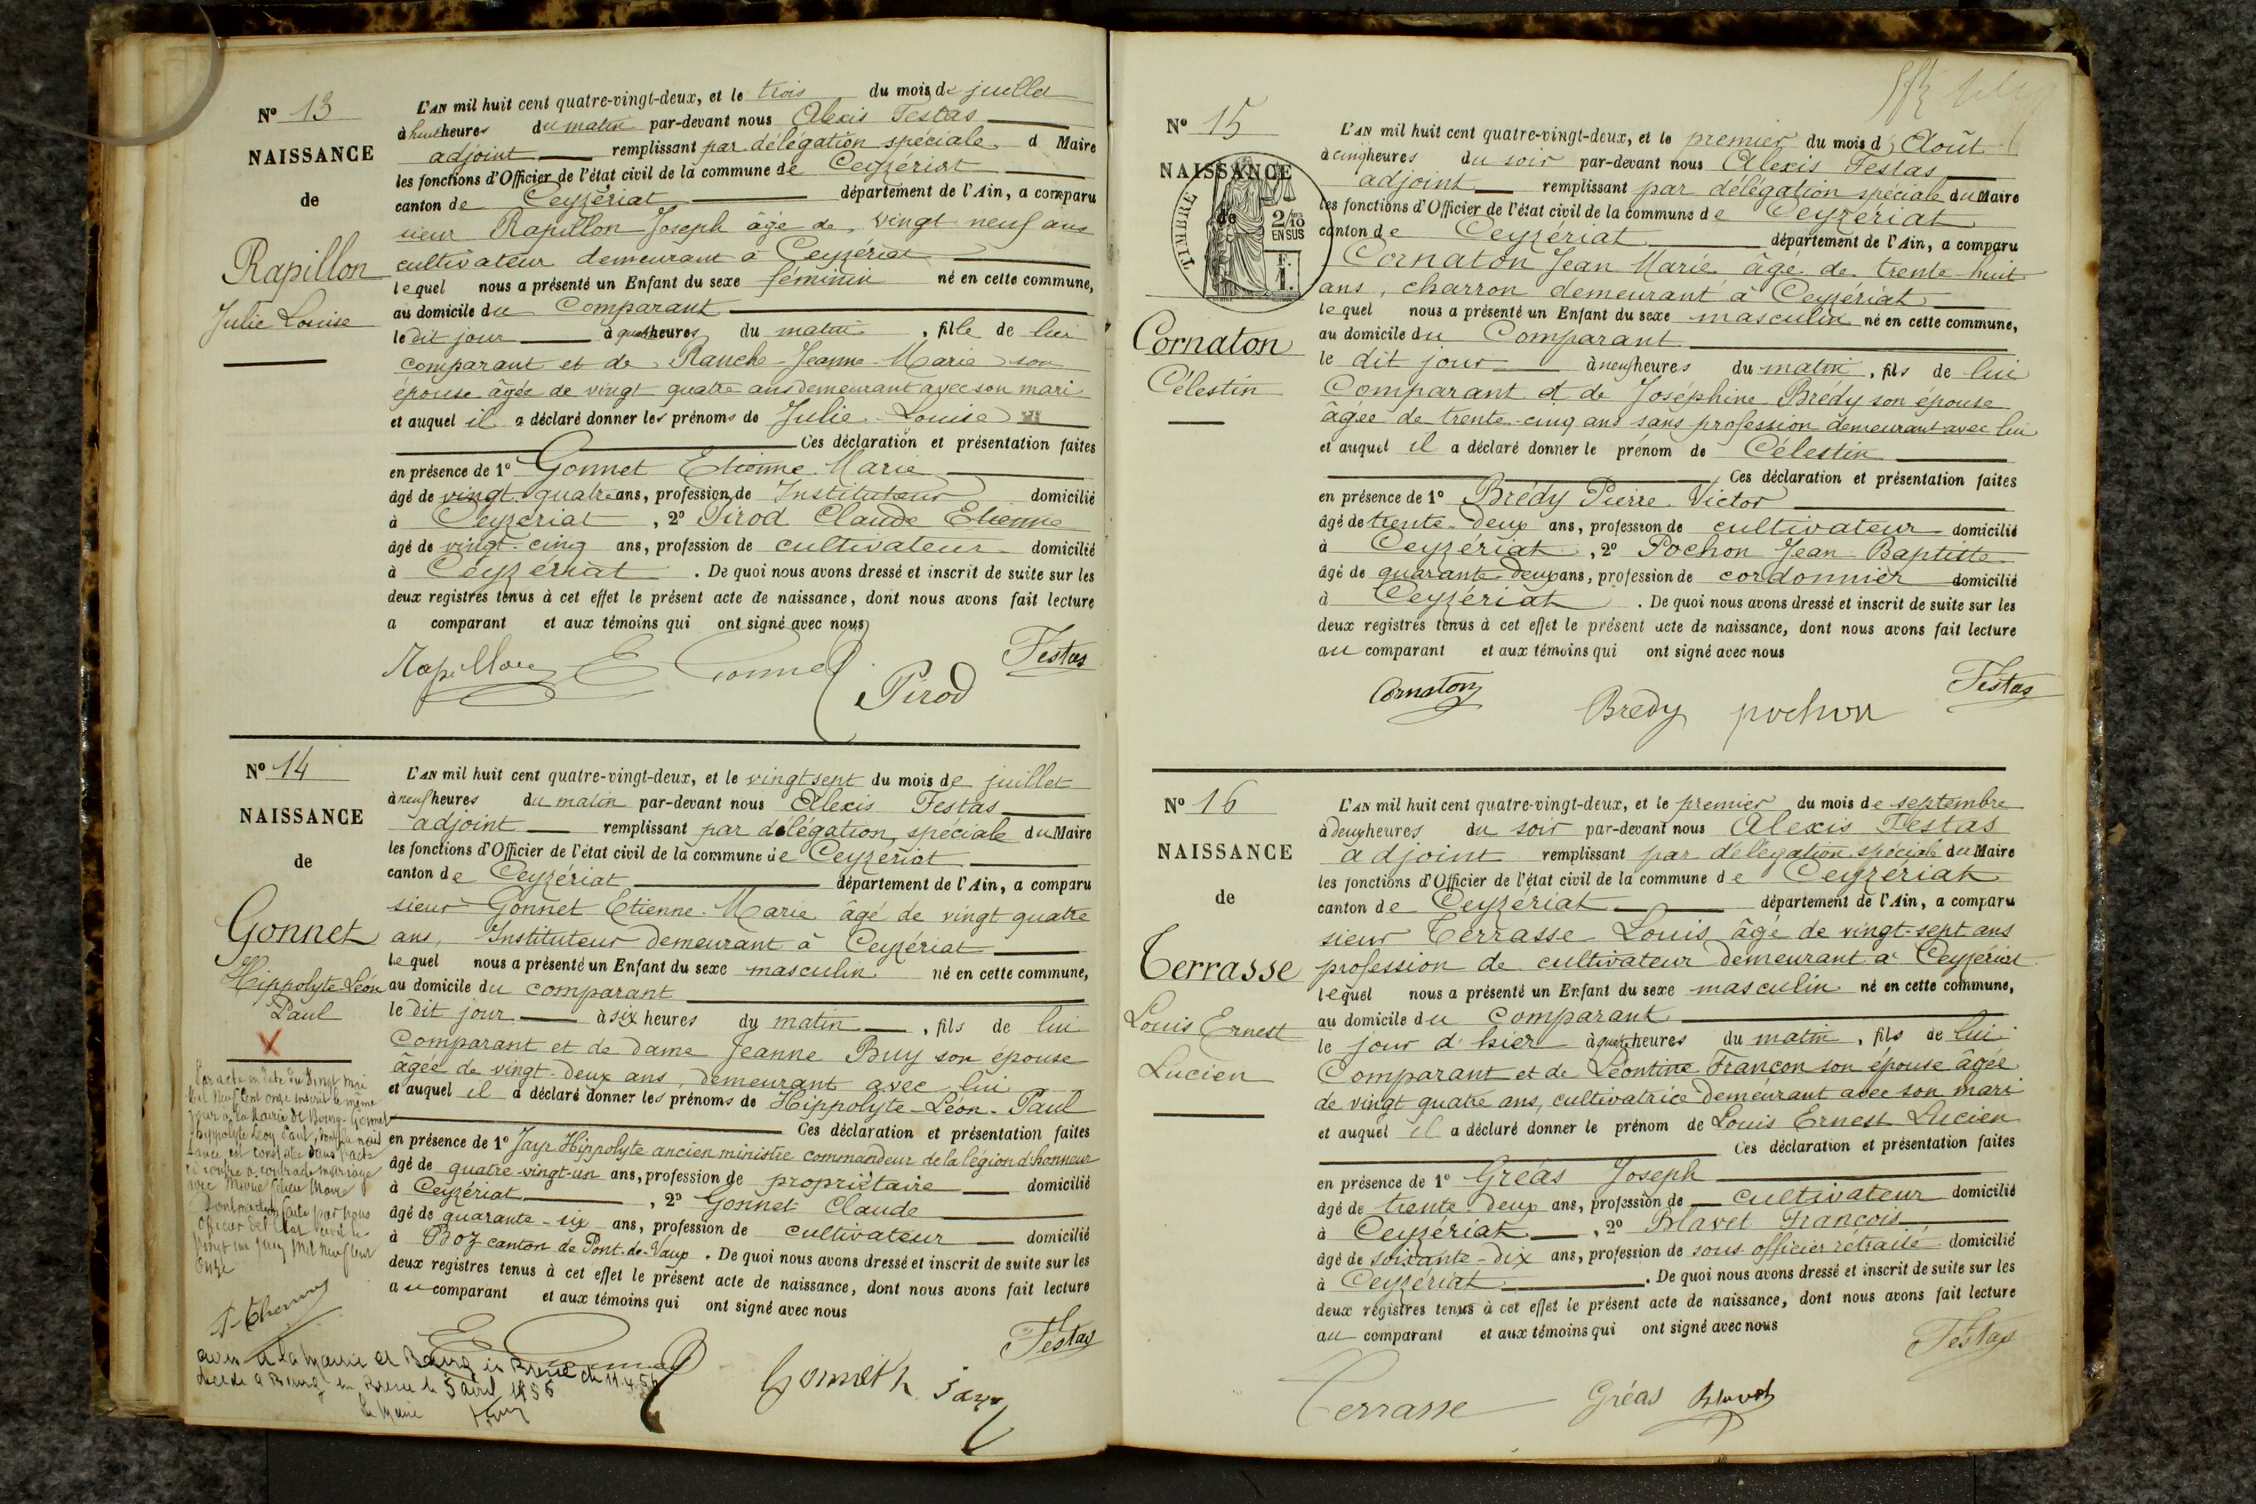 N° 13
NAISSANCE
de
Rapillon
Julie Louise
L'AN mil huit cent quatre-vingt-deux, et le trois du mois de juillet
à huit heures du matin par-devant nous Alexis Festas
adjoint remplissant par délégation spéciale d Maire
les fonctions d'Officier de l'état civil de la commune de Ceyzériat
canton de Ceyzériat département de l'Ain, a comparu
sieur Rapillon Joseph âgé de vingt neuf ans
cultivateur demeurant à Ceyzériat
lequel nous a présenté un Enfant du sexe féminin né en cette commune,
au domicile du Comparant
le dit jour à heures du matin, fille de lui
comparant et de Ranche Jeanne Marie son
épouse âgée de vingt quatre ans demeurant avec son mari
et auquel il a déclaré donner les prénoms de Julie Louise
Ces déclaration et présentation faites
en présence de 1° Gonnet Etienne Marie
âgé de vingt-quatre ans, profession de Instituteur domicilié
à Ceyzériat, 2° Pirod Claude Etienne
âgé de vingt-cinq ans, profession de cultivateur domicilié
à Ceyzériat. De quoi nous avons dressé et inscrit de suite sur les
deux registres tenus à cet effet le présent acte de naissance, dont nous avons fait lecture
a comparant et aux témoins qui ont signé avec nous
Rapillon E Gonnet Pirod Festas
N° 14
NAISSANCE
de
Gonnet
Hippolyte Léon
Paul
X
L'AN mil huit cent quatre-vingt-deux, et le vingt sept du mois de juillet
à neuf heures du matin par-devant nous Alexis Festas
adjoint remplissant par délégation spéciale du Maire
les fonctions d'Officier de l'état civil de la commune de Ceyzériat
canton de Ceyzériat département de l'Ain, a comparu
sieur Gonnet Étienne-Marie âgé de vingt quatre
ans, Instituteur demeurant à Ceyzériat
lequel nous a présenté un Enfant du sexe masculin né en cette commune,
au domicile du comparant
le dit jour à six heures du matin, fils de lui
Comparant et de dame Jeanne Buy son épouse
âgée de vingt-deux ans, demeurant avec lui
et auquel il a déclaré donner les prénoms de Hippolyte-Léon-Paul
Ces déclaration et présentation faites
en présence de 1° Jayr Hippolyte ancien ministre commandeur de la légion d'honneur
âgé de quatre-vingt-un ans, profession de propriétaire domicilié
à Ceyzériat, 2° Gonnet Claude
âgé de quarante-six ans, profession de cultivateur domicilié
à Boz canton de Pont-de-Vaux. De quoi nous avons dressé et inscrit de suite sur les
deux registres tenus à cet effet le présent acte de naissance, dont nous avons fait lecture
au comparant et aux témoins qui ont signé avec nous
Par acte en date du vingt mai
mil neuf cent onze inscrit le même
jour à la Mairie de Bourg, Gonnet
Hippolyte Léon Paul, dont la nais
sance est constatée dans l'acte
ci contre a contracté mariage
avec Marie
faite par nous
officier de l'état civil le
vingt un juin mil neuf cent
onze
avis de la mairie de Bourg en Bresse du 11.4.56
décédé à Bourg en Bresse le 5 avril 1956
Le Maire
Gonnet Jayr Festas
N° 15
NAISSANCE
de
TIMBRE
2/10 EN SUS
Cornaton
Célestin
L'AN mil huit cent quatre-vingt-deux, et le premier du mois d'Août
à cinq heures du soir par-devant nous Alexis Festas
adjoint remplissant par délégation spéciale du Maire
les fonctions d'Officier de l'état civil de la commune de Ceyzériat
canton de Ceyzériat département de l'Ain, a comparu
Cornaton Jean Marie âgé de trente-huit
ans, charron demeurant à Ceyzériat
lequel nous a présenté un Enfant du sexe masculin né en cette commune,
au domicile du Comparant
le dit jour à neuf heures du matin, fils de lui
Comparant et de Joséphine Brédy son épouse
âgée de trente-cinq ans sans profession demeurant avec lui
et auquel il a déclaré donner le prénom de Célestin
Ces déclaration et présentation faites
en présence de 1° Brédy Pierre Victor
âgé de trente-deux ans, profession de cultivateur domicilié
à Ceyzériat, 2° Pochon Jean-Baptiste
âgé de quarante-deux ans, profession de cordonnier domicilié
à Ceyzériat. De quoi nous avons dressé et inscrit de suite sur les
deux registres tenus à cet effet le présent acte de naissance, dont nous avons fait lecture
au comparant et aux témoins qui ont signé avec nous
Cornaton Bredy pochon Festas
N° 16
NAISSANCE
de
Terrasse
Louis Ernest
Lucien
L'AN mil huit cent quatre-vingt-deux, et le premier du mois de septembre
à deux heures du soir par-devant nous Alexis Festas
adjoint remplissant par délégation spéciale du Maire
les fonctions d'Officier de l'état civil de la commune de Ceyzériat
canton de Ceyzériat département de l'Ain, a comparu
sieur Terrasse Louis âgé de vingt-sept ans
profession de cultivateur demeurant à Ceyzériat
lequel nous a présenté un Enfant du sexe masculin né en cette commune,
au domicile du comparant
le jour d'hier à heures du matin, fils de lui
Comparant et de Léontine Françon son épouse âgée
de vingt quatre ans, cultivatrice demeurant avec son mari
et auquel il a déclaré donner le prénom de Louis Ernest Lucien
Ces déclaration et présentation faites
en présence de 1° Gréas Joseph
âgé de trente deux ans, profession de cultivateur domicilié
à Ceyzériat, 2° Blavet François
âgé de soixante-dix ans, profession de sous officier rétraité domicilié
à Ceyzériat. De quoi nous avons dressé et inscrit de suite sur les
deux registres tenus à cet effet le présent acte de naissance, dont nous avons fait lecture
au comparant et aux témoins qui ont signé avec nous
Terrasse Gréas Blavet Festas